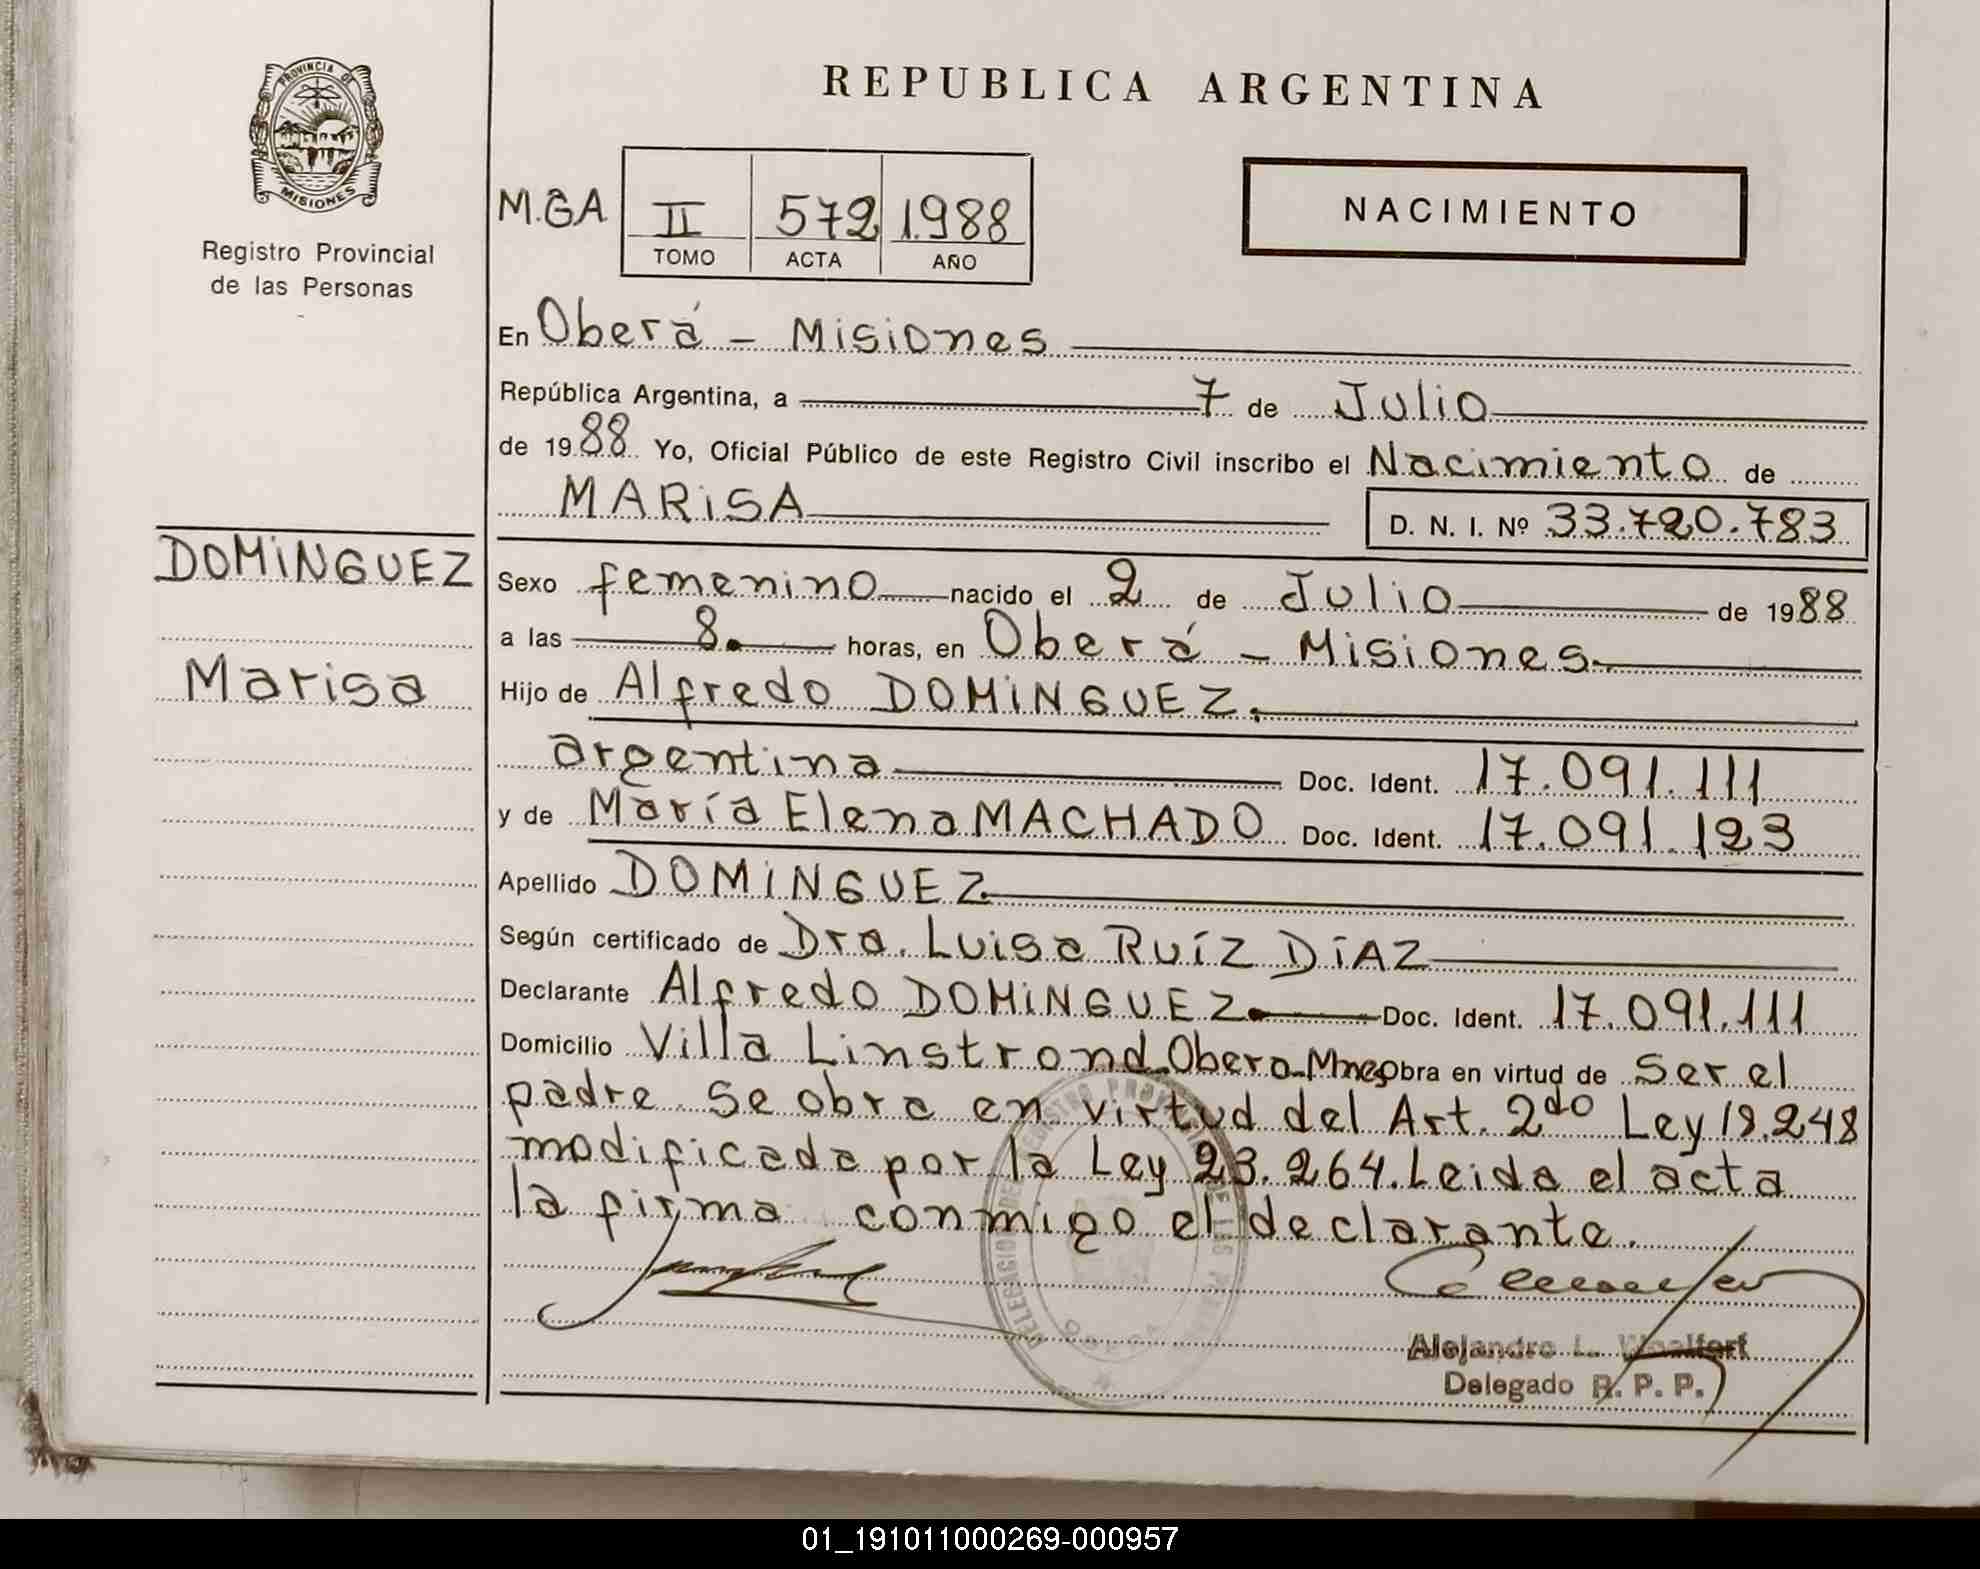 PROVINCIA DE
MISIONES
Registro Provincial
de las Personas
REPUBLICA ARGENTINA
M.GA II 572 1.988
TOMO ACTA AÑO
NACIMIENTO
En Oberá - Misiones
República Argentina, a 7 de Julio
de 19 88 Yo, Oficial Público de este Registro Civil inscribo el Nacimiento de
MARiSA D. N. I. Nº 33.720.783
DOMiNGUEZ
Marisa
Sexo femenino nacido el 2 de Julio de 1988
a las 8. horas, en Oberá - Misiones
Hijo de Alfredo DOMiNGUEZ.
argentina Doc. Ident. 17.091.111
y de María Elena MACHADO Doc. Ident. 17.091.123
Apellido DOMiNGUEZ
Según certificado de Dra. Luisa RUíZ DíAZ
Declarante Alfredo DOMiNGUEZ Doc. Ident. 17.091.111
Domicilio Villa Linstrond Obera-Mnes obra en virtud de Ser el
padre Se obra en virtud del Art. 2do Ley 18.248
modificada por la Ley 23.264. Leida el acta
la firma conmigo el declarante.
Alejandro L.
Delegado R. P. P.
01_191011000269-000957